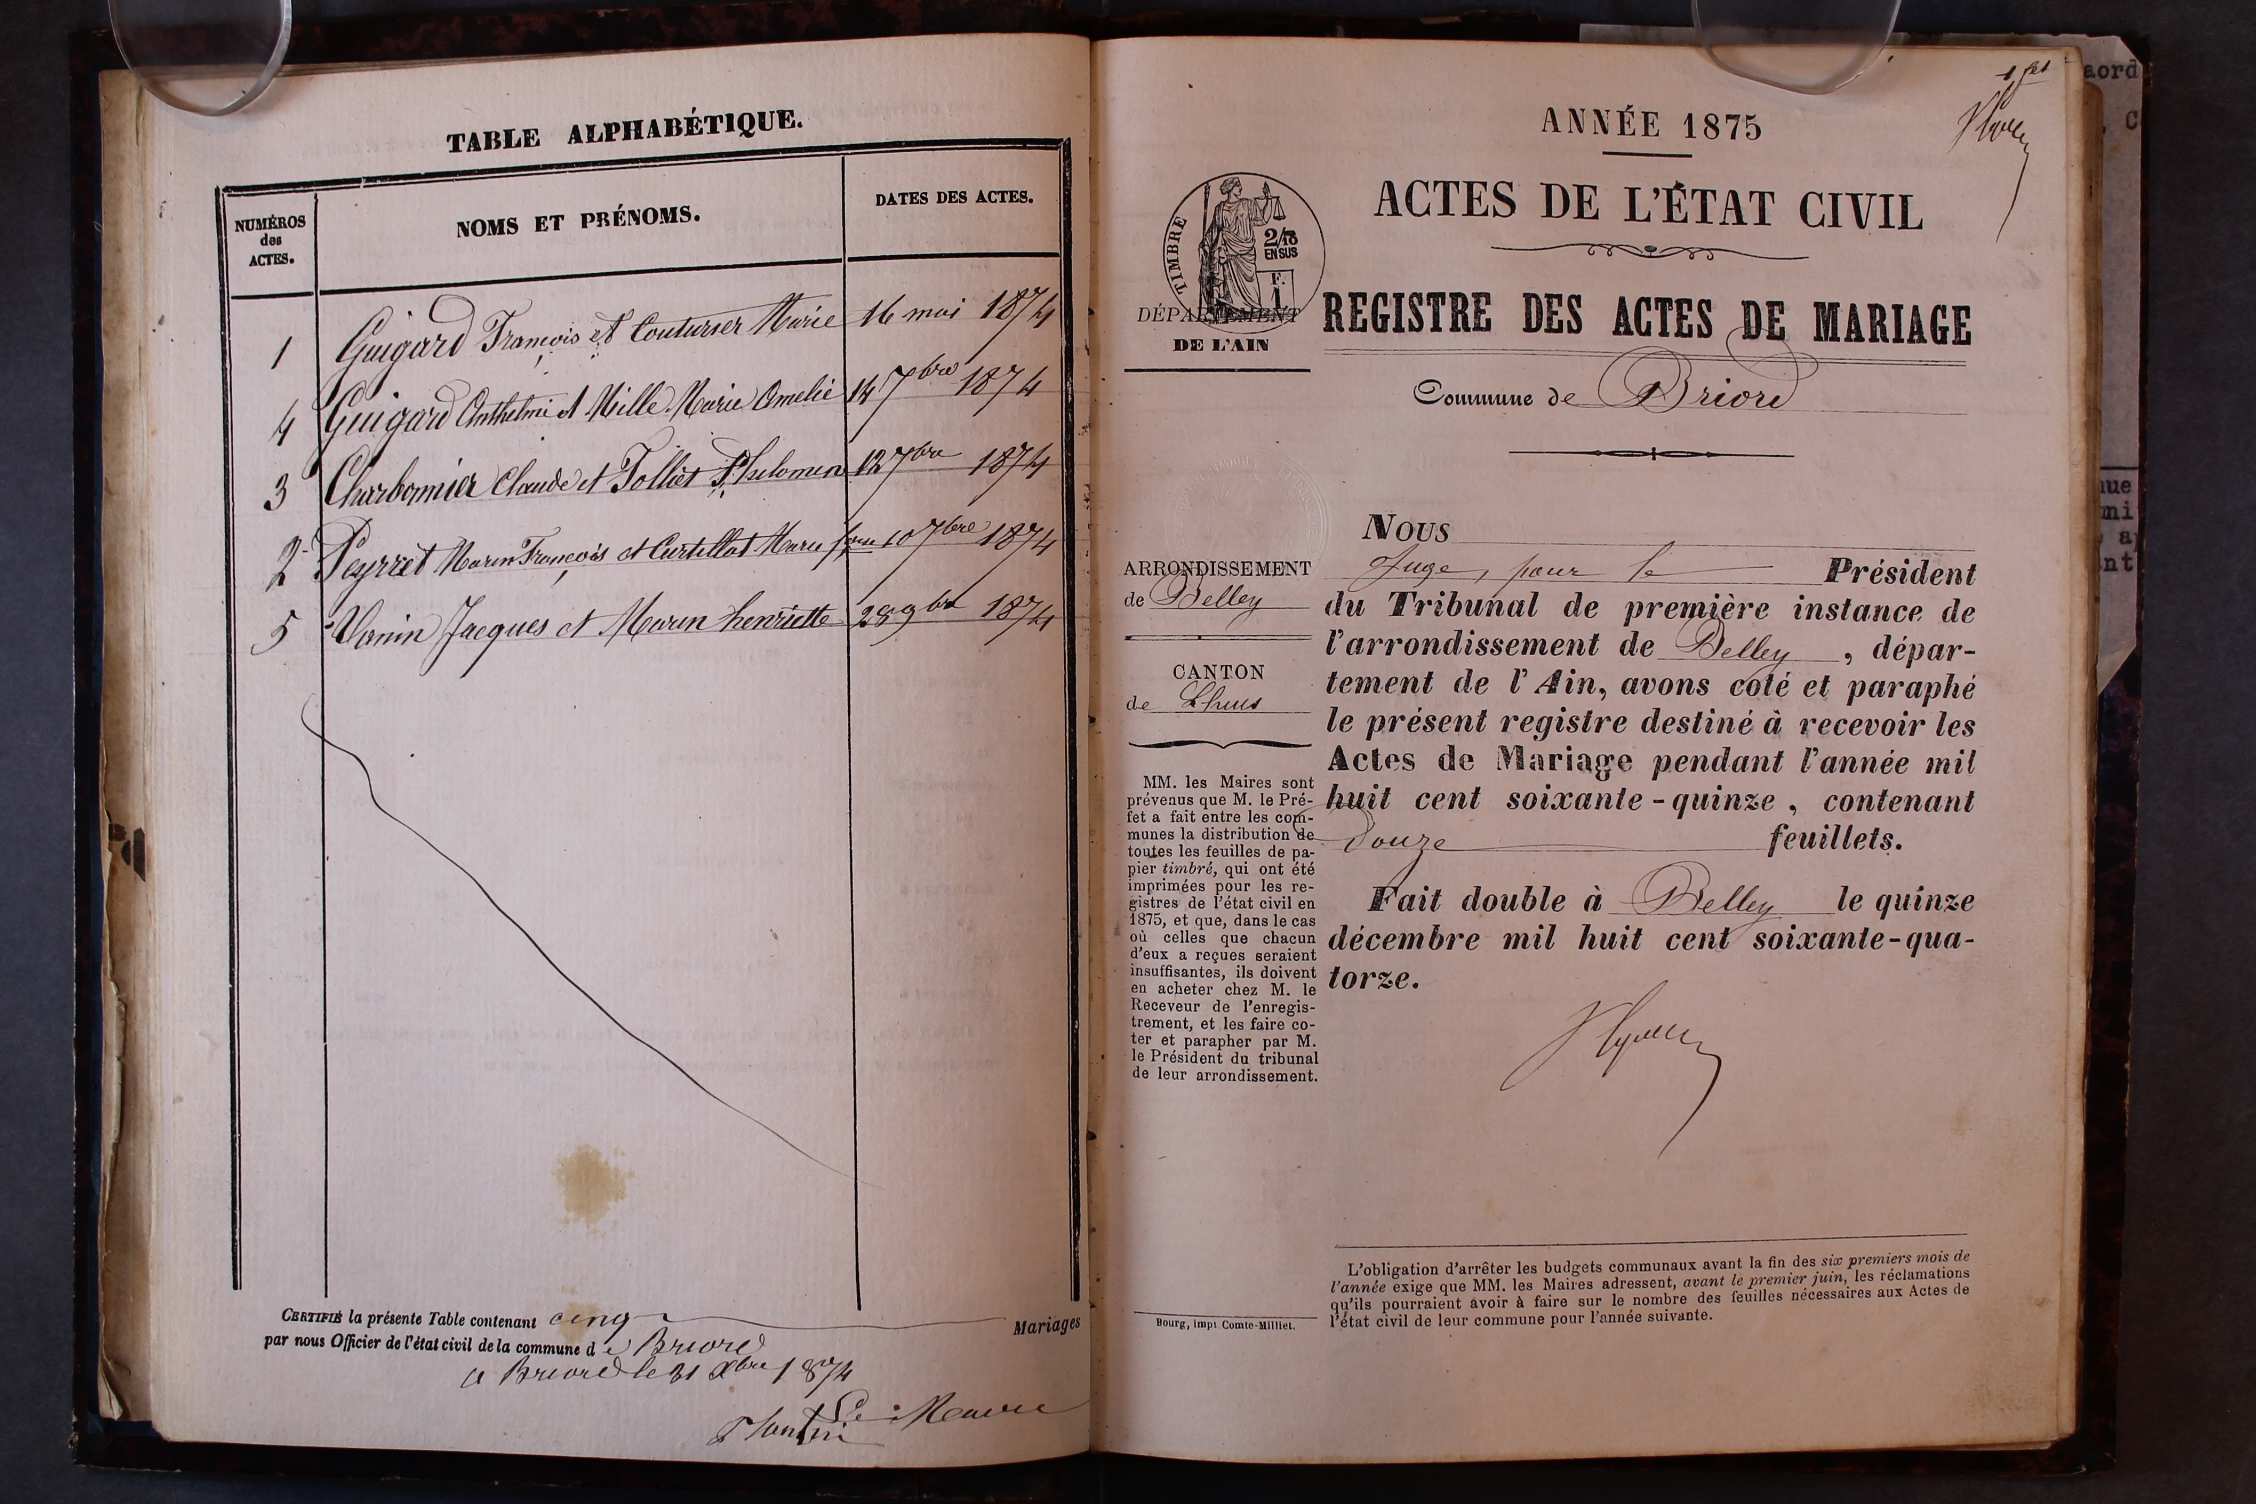 TABLE ALPHABÉTIQUE.
NUMÉROS des ACTES.
NOMS ET PRÉNOMS.
DATES DES ACTES.
1 Guigard François et Couturier Marie 16 mai 1874
4 Guigard Anthelme et Mille Marie Amelie 14 7bre 1874
3 Charbonnier Claude et Tolliet Philomen 12 7bre 1874
2 Peyrret Marin François et Curtillat Marie 10 7bre 1874
5 Vanin Jacques et Marin henriette 28 9bre 1874
CERTIFIÉ la présente Table contenant cinq Mariages
par nous Officier de l'état civil de la commune de Briord
a Briord le 31 Xbre 1874
Le Maire
1er
ANNÉE 1875
ACTES DE L'ÉTAT CIVIL
TIMBRE
2/10
EN SUS
F.
1
DÉPARTEMENT
DE L'AIN
REGISTRE DES ACTES DE MARIAGE
Commune de Briord
ARRONDISSEMENT
de Belley
CANTON
de Lhuis
MM. les Maires sont
prévenus que M. le Pré-
fet a fait entre les com-
munes la distribution de
toutes les feuilles de pa-
pier timbré, qui ont été
imprimées pour les re-
gistres de l'état civil en
1875, et que, dans le cas
où celles que chacun
d'eux a reçues seraient
insuffisantes, ils doivent
en acheter chez M. le
Receveur de l'enregis-
trement, et les faire co-
ter et parapher par M.
le Président du tribunal
de leur arrondissement.
Bourg, impr Comte-Milliet.
NOUS
Juge, pour le Président
du Tribunal de première instance de
l'arrondissement de Belley, dépar-
tement de l'Ain, avons coté et paraphé
le présent registre destiné à recevoir les
Actes de Mariage pendant l'année mil
huit cent soixante-quinze, contenant
Douze feuillets.
Fait double à Belley le quinze
décembre mil huit cent soixante-qua-
torze.
L'obligation d'arrêter les budgets communaux avant la fin des six premiers mois de
l'année exige que MM. les Maires adressent, avant le premier juin, les réclamations
qu'ils pourraient avoir à faire sur le nombre des feuilles nécessaires aux Actes de
l'état civil de leur commune pour l'année suivante.
aord
, C
nue
mi
a
nt